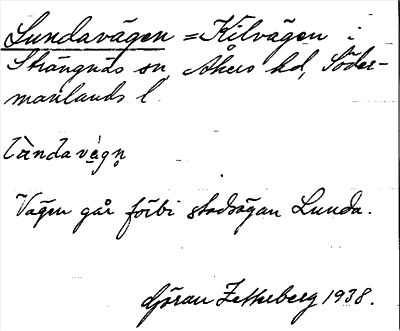 Lundavägen = Kilvägen i
Strängnäs sn, Åkers hd, Söder-
manlands l.
Vägen går förbi stadsägan Lunda.
Göran Zetterberg 1938.